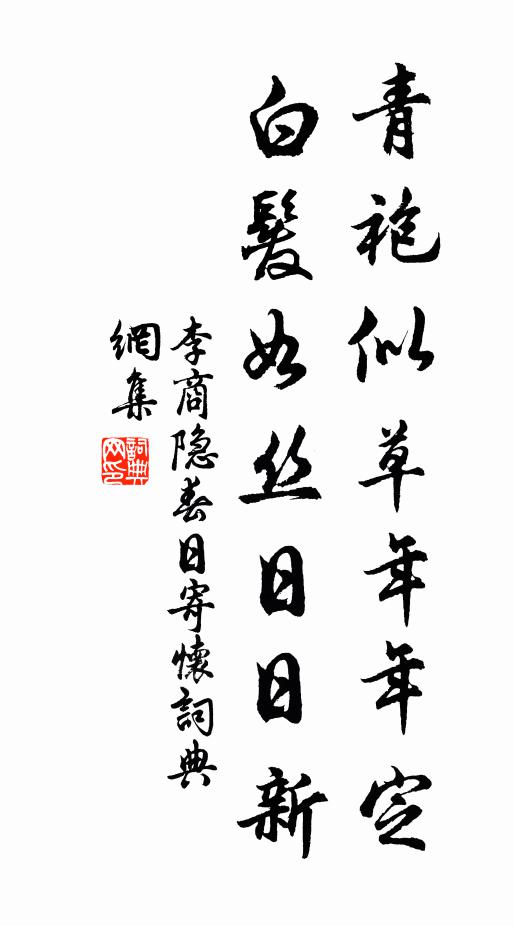 青袍似草年年定
白髮如丝日日新
李商隐春日寄懷詞典
網集
詞典网印